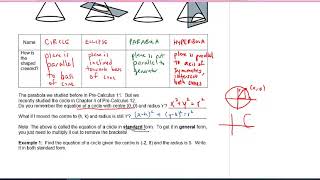 Name CIRCLE ELLIPSE PARABOLA HYPERBOLA
How is the shaped created?
plane is parallel to base of cone
plane is inclined towards base of cone
plane is cut parallel to generator
plane is parallel to axis of symmetry, intersects both cones
The parabola we studied before in Pre-Calculus 11. But we
recently studied the circle in Chapter 5 of Pre-Calculus 12.
Do you remember the equation of a circle with centre (0, 0) and radius r? x²+y²=r²
What if I moved the centre to (h, k) and radius is still r? (x-h)² + (y-k)² = r²
Note: The above is called the equation of a circle in standard form. To get it in general form,
you just need to multiply it out to remove the brackets.
Example 1: Find the equation of a circle given the centre is (-2, 8) and the radius is 5. Write
it in both standard form.